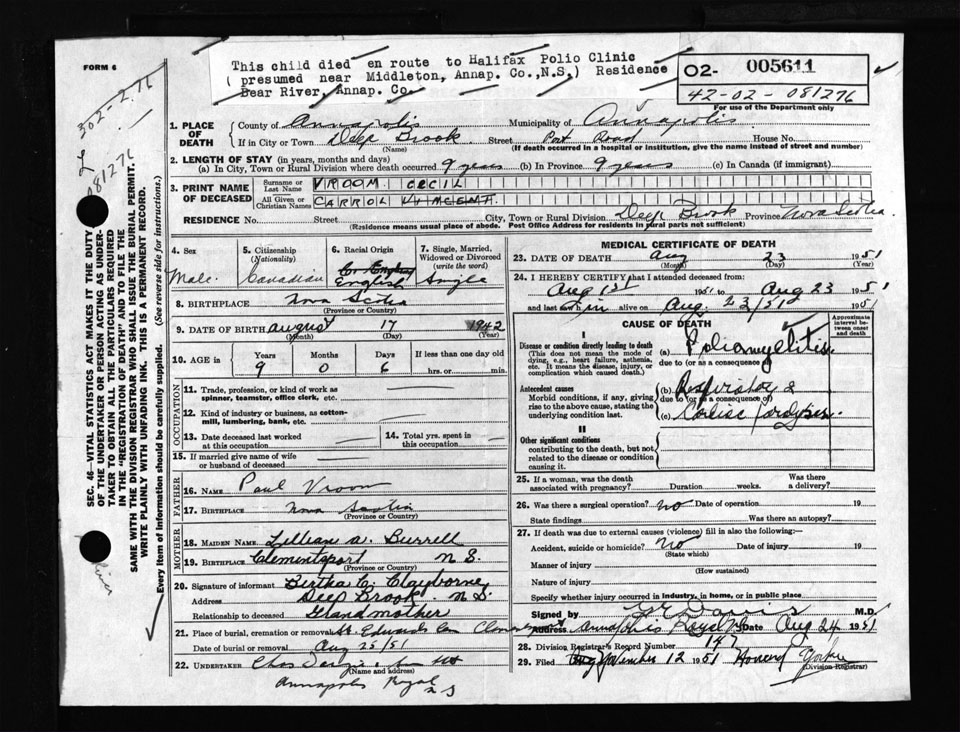 FORM 6
This child died en route to Halifax Polio Clinic
( presumed near Middleton, Annap. Co.,N.S.) Residence
Bear River, Annap. Co.
02- 005611
42-02-081276
For use of the Department only
302-2.76
L
081276
SEC. 46—VITAL STATISTICS ACT MAKES IT THE DUTY
OF THE UNDERTAKER OR PERSON ACTING AS UNDER-
TAKER TO OBTAIN ALL THE PARTICULARS REQUIRED
IN THE "REGISTRATION OF DEATH" AND TO FILE THE
SAME WITH THE DIVISION REGISTRAR WHO SHALL ISSUE THE BURIAL PERMIT.
WRITE PLAINLY WITH UNFADING INK. THIS IS A PERMANENT RECORD.
Every item of information should be carefully supplied. (See reverse side for instructions.)
1. PLACE OF DEATH County of Annapolis Municipality of Annapolis
If in City or Town Deep Brook Street Port Road House No.
(Name) (If death occurred in a hospital or institution, give the name instead of street and number)
2. LENGTH OF STAY (in years, months and days)
(a) In City, Town or Rural Division where death occurred 9 years (b) In Province 9 years (c) In Canada (if immigrant)
3. PRINT NAME OF DECEASED Surname or Last Name VROOM CECIL
All Given or Christian Names CARROL VINCENT
RESIDENCE House No. Street City, Town or Rural Division Deep Brook Province Nova Scotia
(Residence means usual place of abode. Post Office Address for residents in rural parts not sufficient)
4. Sex Male
5. Citizenship (Nationality) Canadian
6. Racial Origin English
7. Single, Married, Widowed or Divorced (write the word) Single
8. BIRTHPLACE Nova Scotia
(Province or Country)
9. DATE OF BIRTH August 17 1942
(Month) (Day) (Year)
10. AGE in Years Months Days If less than one day old
9 0 6 hrs. or min.
OCCUPATION
11. Trade, profession, or kind of work as
spinner, teamster, office clerk, etc.
12. Kind of industry or business, as cotton-
mill, lumbering, bank, etc.
13. Date deceased last worked
at this occupation
14. Total yrs. spent in
this occupation
15. If married give name of wife
or husband of deceased
FATHER
16. NAME Paul Vroom
17. BIRTHPLACE Nova Scotia
(Province or Country)
MOTHER
18. MAIDEN NAME Lillian A. Burrell
19. BIRTHPLACE Clementsport N S.
(Province or Country)
20. Signature of informant Bertha C. Clayborne
Address Deep Brook N S.
Relationship to deceased Grandmother
21. Place of burial, cremation or removal St. Edwards
Date of burial or removal Aug 25/51
22. UNDERTAKER Chas
(Name and address)
Annapolis Royal N S
MEDICAL CERTIFICATE OF DEATH
23. DATE OF DEATH Aug 23 1951
(Month) (Day) (Year)
24. I HEREBY CERTIFY that I attended deceased from:
Aug 1st 1951 to Aug 23 1951
and last saw him alive on Aug 23/51 1951
CAUSE OF DEATH Approximate interval between onset and death
I
Disease or condition directly leading to death
(This does not mean the mode of
dying, e.g., heart failure, asthenia,
etc. It means the disease, injury, or
complication which caused death.)
(a) Poliomyelitis
due to (or as a consequence of)
Antecedent causes
Morbid conditions, if any, giving
rise to the above cause, stating the
underlying condition last.
(b) Respiratory &
due to (or as a consequence of)
(c) Cardiac Paralysis.
II
Other significant conditions
contributing to the death, but not
related to the disease or condition
causing it.
25. If a woman, was the death
associated with pregnancy? Duration weeks. Was there
a delivery?
26. Was there a surgical operation? No Date of operation 19
State findings Was there an autopsy?
27. If death was due to external causes (violence) fill in also the following:
Accident, suicide or homicide? No Date of injury 19
(State which)
Manner of injury
(How sustained)
Nature of injury
Specify whether injury occurred in industry, in home, or in public place
Signed by Davis M.D.
Address Annapolis Royal NS Date Aug 24 1951
28. Division Registrar's Record Number 147
29. Filed November 12 1951 Yorke
(Division Registrar)